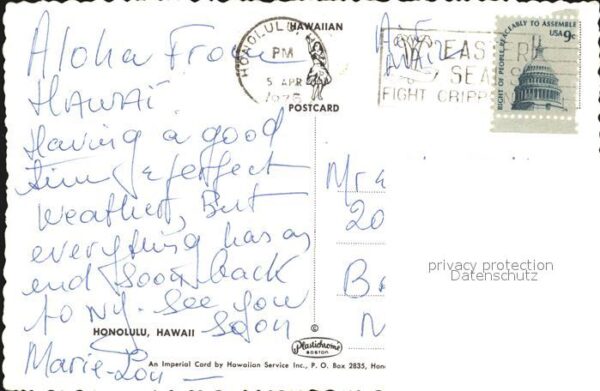 HAWAIIAN
POSTCARD
HONOLULU
PM
5 APR
EASTER
SEALS
FIGHT CRIPPLING
RIGHT OF PEOPLE PEACEABLY TO ASSEMBLE
USA 9c
Aloha From
HAWAI
Having a good
time & perfect
weather, But
everything has an
end Soon back
to NY. See you
soon
Marie-Lou
Air
Mail
Mr &
20
B
N
privacy protection
Datenschutz
HONOLULU, HAWAII
©
Plastichrome
BOSTON
An Imperial Card by Hawaiian Service Inc., P. O. Box 2835, Hon